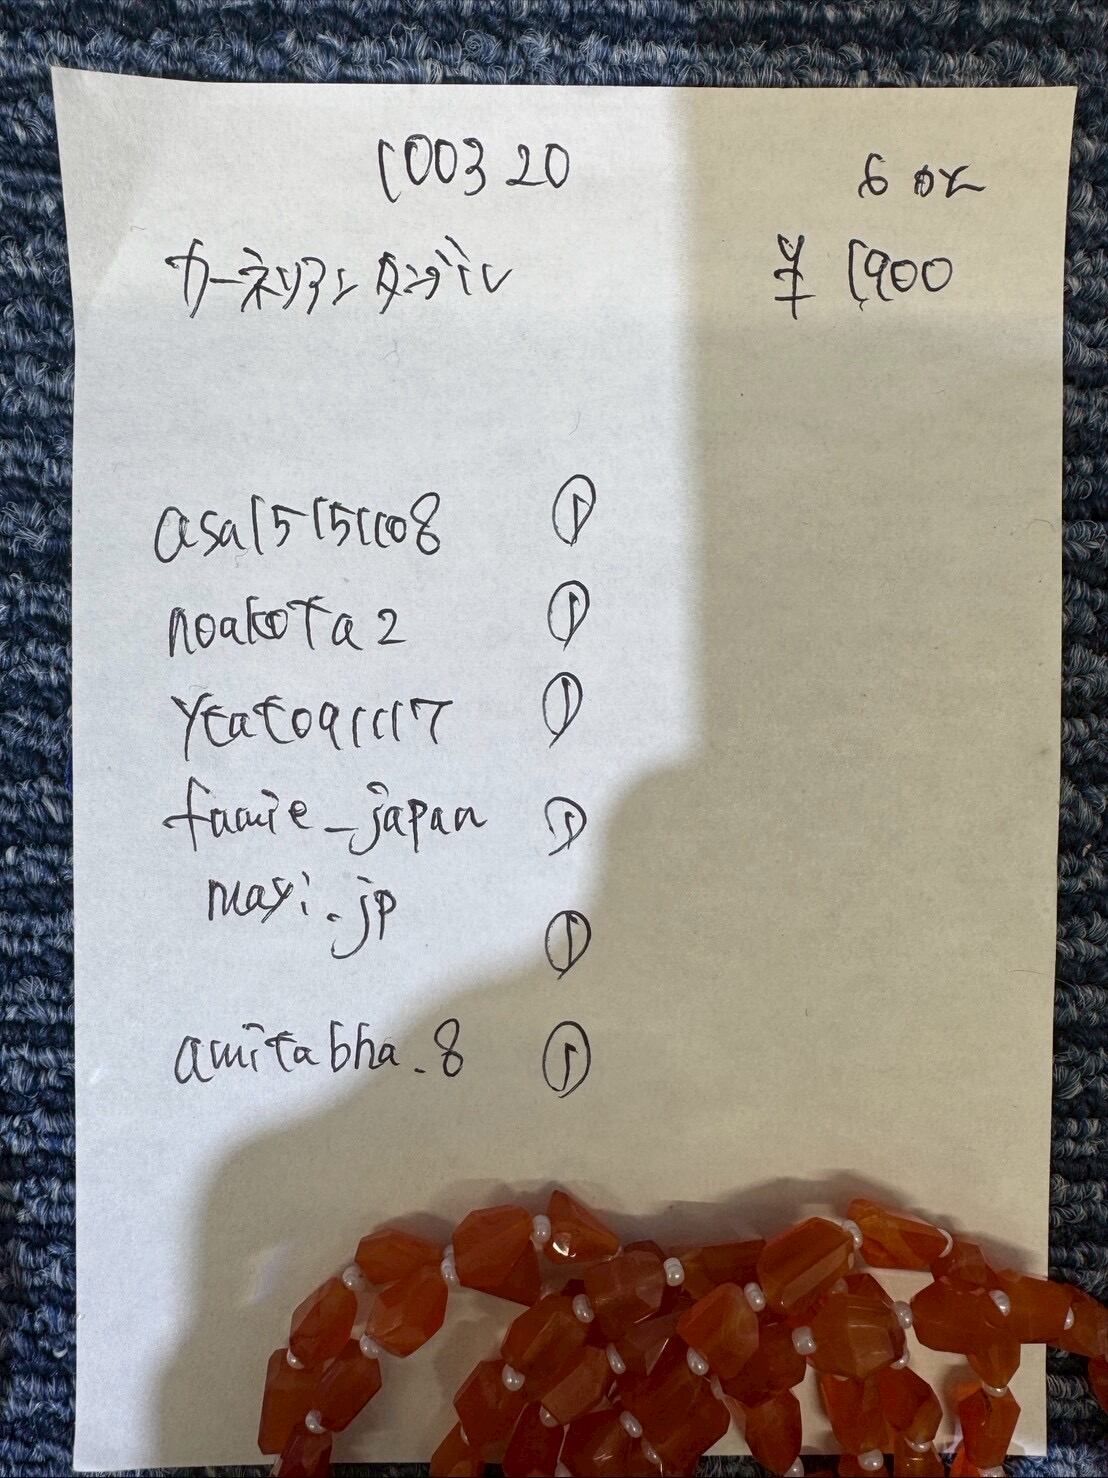 100320 6本
カーネリアンタンブル ¥1900
asa15151108 ①
noakota2 ①
ytato91117 ①
famie_japan ①
mayi.jp ①
amitabha_8 ①